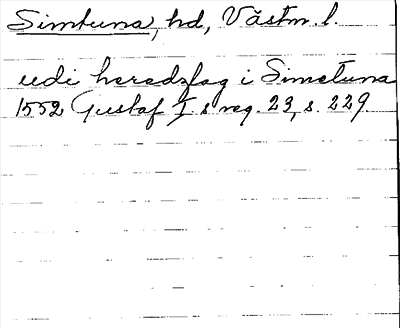 Simtuna, hd, Västm. l.
udi heredzflag i Simetuna
1552 Gustaf I s reg. 23, s. 229.